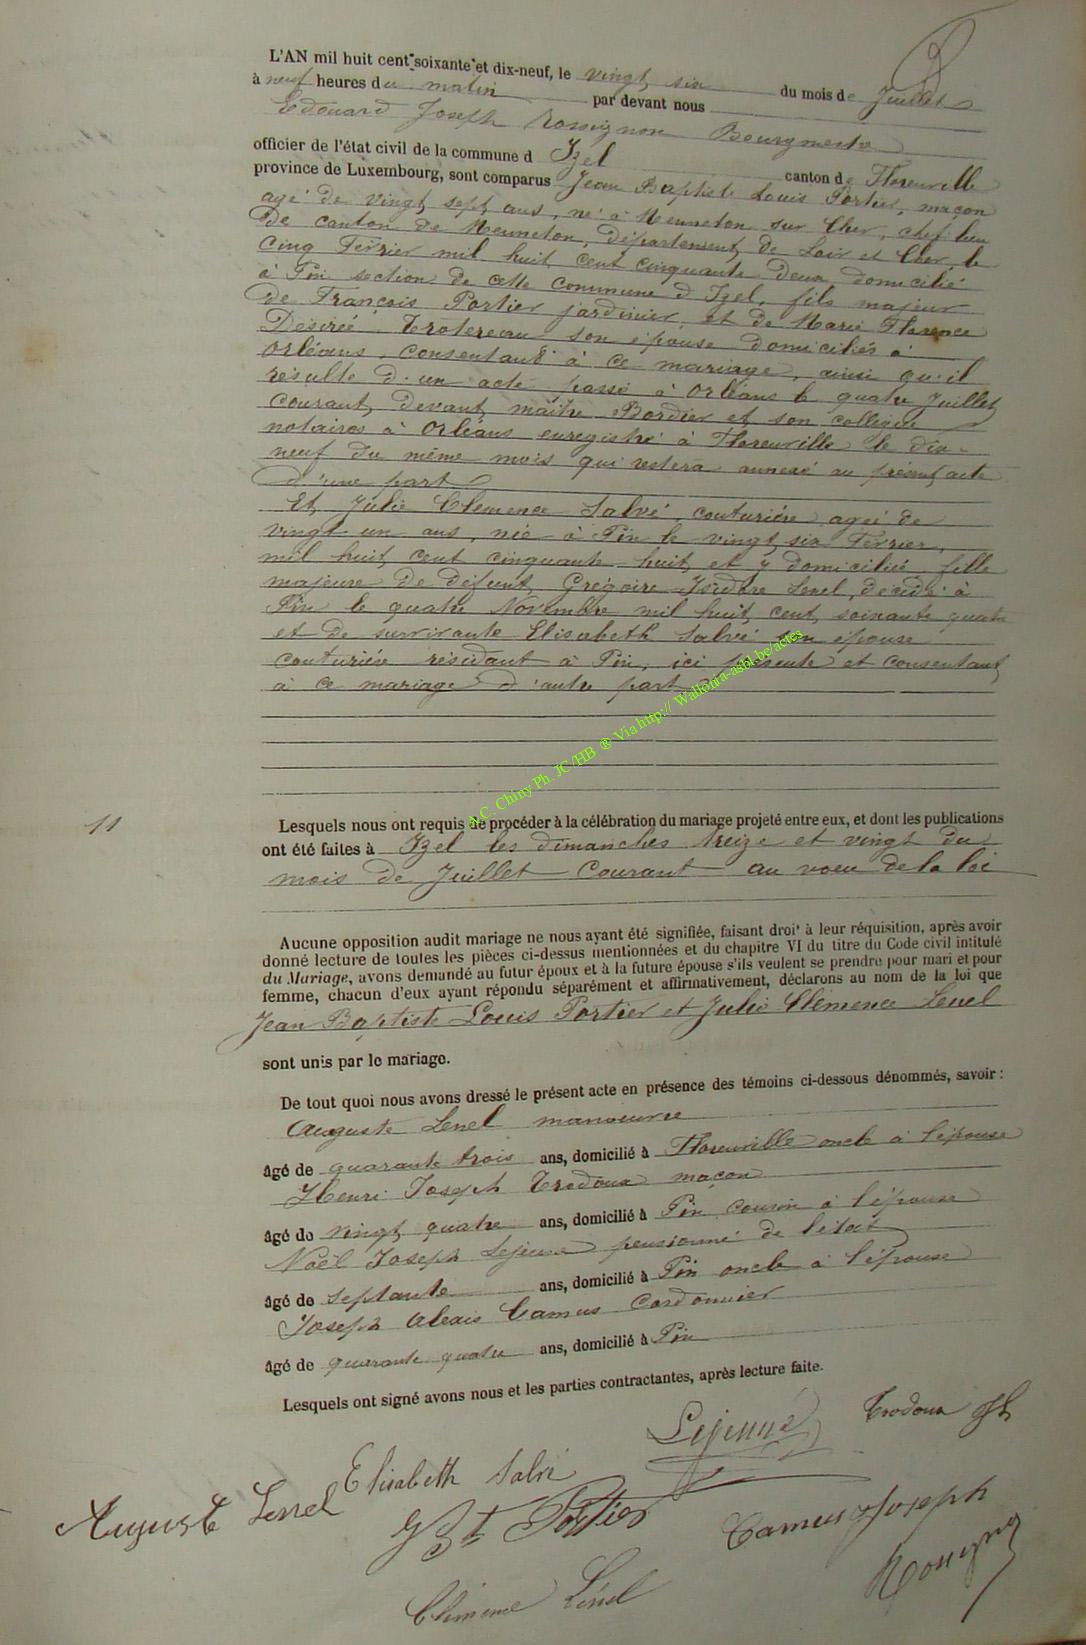 L'AN mil huit cent soixante et dix-neuf, le vingt six du mois de Juillet
à neuf heures du matin par devant nous
Edouard Joseph Rossignon Bourgmestre
officier de l'état civil de la commune d Izel canton de Florenville
province de Luxembourg, sont comparus Jean Baptiste Louis Portier, maçon
agé de vingt sept ans, né à Menneton sur Cher, chef lieu
de canton de Menneton, département de Loir et Cher, le
cinq Fevrier mil huit cent cinquante deux domicilié
à Pin section de cette commune d'Izel, fils majeur
de François Portier jardinier, et de Marie Florence
Désirée Trotereau son épouse domiciliés à
Orléans, consentant à ce mariage, ainsi qu'il
résulte d'un acte passé à Orléans le quatre Juillet
courant, devant maître Bordier et son collègue
notaires à Orléans enregistré à Florenville le dix-
neuf du même mois qui restera annexé au présent acte
d'une part
Et Julie Clemence Salvé, couturière agée de
vingt un ans, née à Pin le vingt six Fevrier,
mil huit cent cinquante huit et y domicilié fille
majeure de défunt Grégoire Isidore Lenel, décédé à
Pin le quatre Novembre mil huit cent soixante quatre
et de survivante Elisabeth Salvé son épouse
couturière résidant à Pin, ici présente et consentant
à ce mariage d'autre part
A.C. Chiny Ph. JC/HB ® Via http:// Wallonia-asbl.be/actes
11
Lesquels nous ont requis de procéder à la célébration du mariage projeté entre eux, et dont les publications
ont été faites à Izel les dimanches treize et vingt du
mois de Juillet Courant au voeu de la loi
Aucune opposition audit mariage ne nous ayant été signifiée, faisant droit à leur réquisition, après avoir
donné lecture de toutes les pièces ci-dessus mentionnées et du chapitre VI du titre du Code civil intitulé
du Mariage, avons demandé au futur époux et à la future épouse s'ils veulent se prendre pour mari et pour
femme, chacun d'eux ayant répondu séparément et affirmativement, déclarons au nom de la loi que
Jean Baptiste Louis Portier et Julie Clémence Lenel
sont unis par le mariage.
De tout quoi nous avons dressé le présent acte en présence des témoins ci-dessous dénommés, savoir :
Auguste Lenel manoeuvre
âgé de quarante trois ans, domicilié à Florenville oncle à l'épouse
Henri Joseph Trodoux maçon
âgé de vingt quatre ans, domicilié à Pin cousin à l'épouse
Noël Joseph Lejeune pensionné de l'état
âgé de septante ans, domicilié à Pin oncle à l'épouse
Joseph Alexis Camus Cordonnier
âgé de quarante quatre ans, domicilié à Pin
Lesquels ont signé avons nous et les parties contractantes, après lecture faite.
Lejeune Trodoux
Elisabeth Salvé
Auguste Lenel
Portier
Camus Joseph
Rossignon
Clémence Lénel